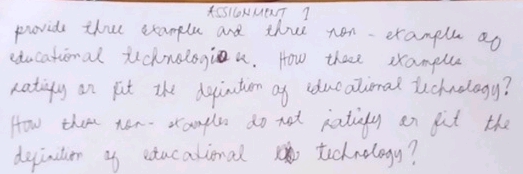 ASSIGNMENT 1
provide three examples and three non-examples of
educational technologies. How these examples
satisfy or fit the definition of educational technology?
How these non-examples do not satisfy or fit the
definition of educational technology?